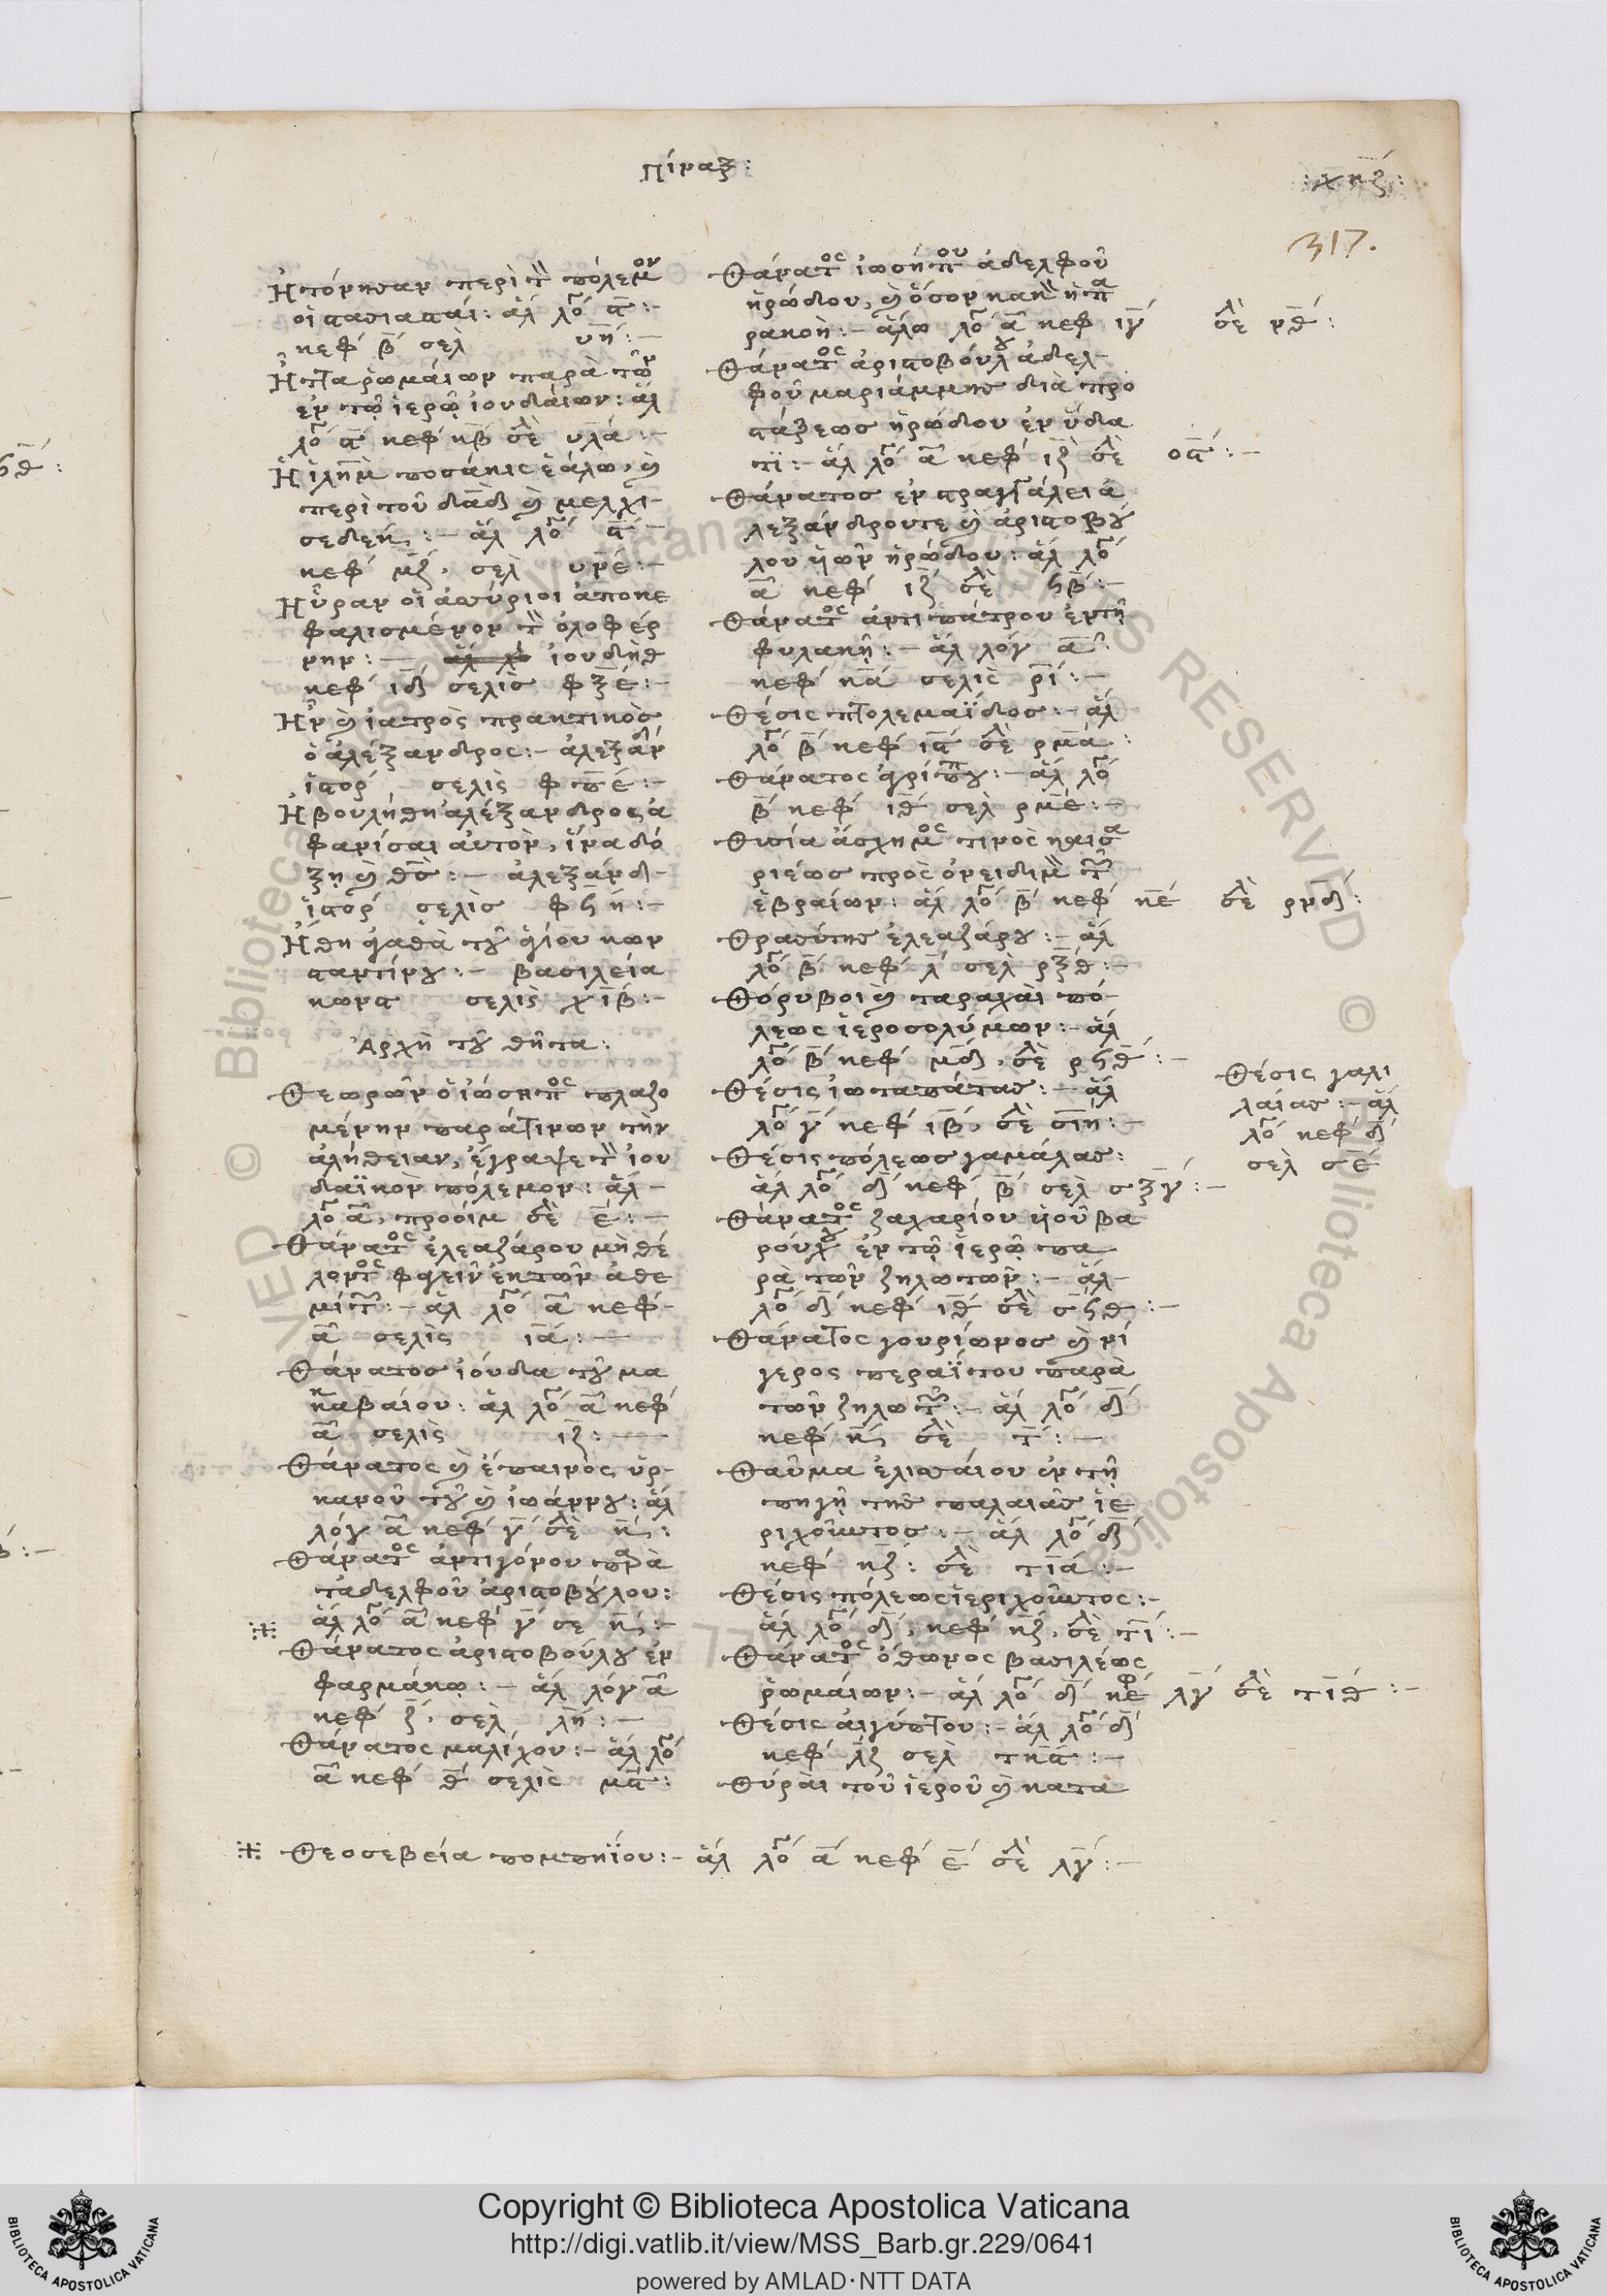 Πίναξ:
317.
Ἡτόνησαν περὶ τὸν πόλεμον
οἱ στασιασταί: ἅλ λό α:-
κεφ β σελ υη:-
ἐν τῶ ἱερῶ ἰουδαίων: ἅλ
λό α κεφ κβ σελ υλα:-
Ἡ ἱλημ ποσάκις ἑάλω, καὶ
περὶ τοῦ δαδ καὶ μελχι-
σεδεκ:- ἅλ λό α-
κεφ μζ, σελ υνε:-
Ηὗραν οἱ ἀσσύριοι ἀποκε
φαλισμένον τὸν ὁλοφέρ
νην:- ἰουδὴθ
κεφ ιδ σελὶς φξε:-
Ἦν καὶ ἰατρὸς πρακτικὸς
ὁ ἀλέξανδρος:- ἀλεξάν
ἱστορ σελὶς φπε:-
Ἠβουλήθη ἀλέξανδρος ἀ
φανίσαι αὐτὸν, ἵνα δό
ξη καὶ θς:- ἀλεξάνδ-
ἱστορ σελὶς φϟη:-
Ἤθη ἀγαθὰ τοῦ ἁγίου κων
σταντίνου:- βασιλεία
κωνστ σελὶς χιβ:-
Ἀρχὴ τοῦ θῆτα:
Θεωρῶν ὁ ἰώσηπος πλαζο
μένην παράτινων τὴν
ἀλήθειαν, ἔγραψε τὸν ἰου
δαϊκὸν πόλεμον: ἅλ-
λό α, προοίμ σελ ε:-
Θάνατος ἐλεαζάρου μὴ θέ
λοντος φαγεῖν ἐκ τῶν ἀθε
μίτων:- ἅλ λό α κεφ-
α σελὶς ια:-
Θάνατος ἰούδα τοῦ μα
κκαβαίου: ἅλ λό α κεφ
α σελὶς ιζ:-
Θάνατος καὶ ἔπαινος ὑρ-
κανοῦ τοῦ καὶ ἰωάννου: ἅλ
λόγ α κεφ γ σελ κϛ:
Θάνατος ἀντιγόνου παρὰ
τἀδελφοῦ ἀριστοβούλου:
ἅλ λό α κεφ γ σε κϛ:-
Θάνατος ἀριστοβούλου ἐν
φαρμάκω:- ἅλ λόγ α
κεφ ζ, σελ λη:-
Θάνατος μαλίχου:- ἅλ λό
α κεφ θ σελὶς μα:
Θάνατος ἰωσήπου ἀδελφοῦ
ρακοή:- ἅλω λό α κεφ ιγ σελ νθ:
Θάνατος ἀριστοβούλου ἀδελ-
φοῦ μαριάμμης διὰ προ
στάξεως ἡρώδου ἐν ὕδα
τι:- ἅλ λό α κεφ ιζ σελ οα:-
λεξάνδρουτε καὶ ἀριστοβού
λου ὑιῶν ἡρώδου: ἅλ λό
α κεφ ιζ σελ ϟβ:-
Θάνατος ἀντιπάτρου ἐν τῆ
φυλακῆ:- ἅλ λόγ α
κεφ κα σελὶς ρι:-
Θέσις πτολεμαΐδος:- ἅλ
λό β κεφ ια σελ ρμα:
Θάνατος ἀγρίππου:- ἅλ λό
β κεφ ιθ σελ ρμε:-
Θυσία ἀσχημος τινὸς καισα
ριέως πρὸς ὀνειδισμὸν τῶν
ἑβραίων: ἅλ λό β κεφ κε σελ ρνδ:
Θρασύτης ἐλεαζάρου:- ἅλ
λό β κεφ λ σελ ρξθ:-
Θόρυβοι καὶ ταραχαὶ πό-
λεως ἱεροσολύμων:- ἅλ
λό β κεφ μδ, σελ ρϟθ:-
Θέσις ἰωταπάτας:- ἅλ
λό γ κεφ ιβ, σελ σιη:-
Θέσις πόλεως γαμάλας:
ἅλ λό δ κεφ β σελ σξγ:-
Θάνατος ζαχαρίου ὑιοῦ βα
ρούχου ἐν τῶ ἱερῶ πα
ρὰ τῶν ζηλωτῶν:- ἅλ-
λό δ κεφ ιθ σελ σϟθ:-
Θάνατος γουρίωνος καὶ νί
γερος περαΐτου παρὰ
τῶν ζηλωτῶν:- ἅλ λό δ
κεφ κϛ σελ τ:-
Θαῦμα ἐλισσαίου ἐν τῆ
πηγῆ τῆς παλαιᾶς ἱε
ριχοῦντος:- ἅλ λό δ
κεφ κζ: σελ τια:-
Θέσις πόλεως ἱεριχοῦντος:-
ἅλ λό δ, κεφ κζ, σελ τι:-
Θάνατος ὄθωνος βασιλέως
ῥωμαίων:- ἅλ λό δ κεφ λγ σελ τιθ:-
Θέσις αἰγύπτου:- ἅλ λό δ
κεφ λζ σελ τκα:-
Θύραι τοῦ ἱεροῦ καὶ κατα
Θέσις γαλι
λαίας:- ἅλ
λό κεφ δ
σελ σε
Θεοσεβεία πομπηΐου:- ἅλ λό α κεφ ε σελ λγ:-
Copyright © Biblioteca Apostolica Vaticana
http://digi.vatlib.it/view/MSS_Barb.gr.229/0641
powered by AMLAD·NTT DATA
BIBLIOTECA APOSTOLICA VATICANA
BIBLIOTECA APOSTOLICA VATICANA